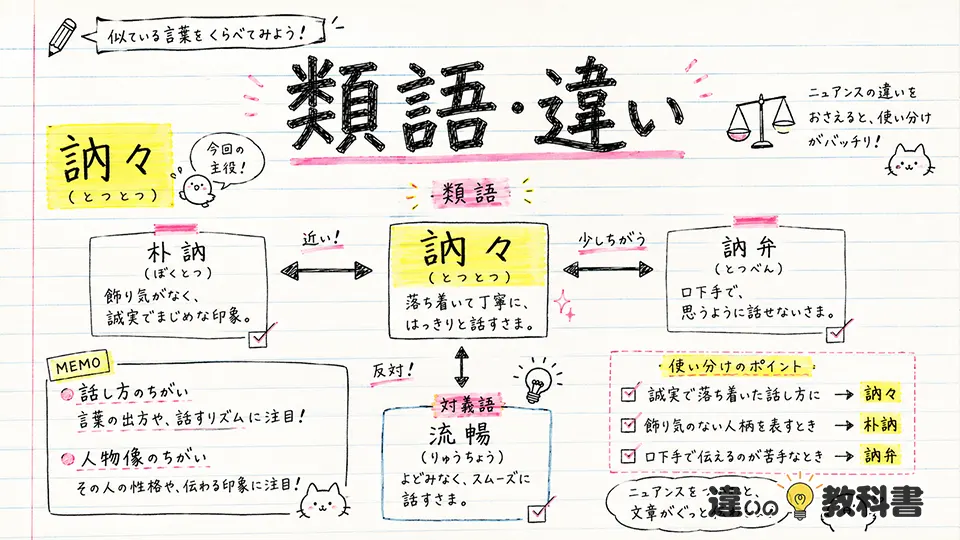 似ている言葉をくらべてみよう!
類語・違い
ニュアンスの違いを
おさえると、使い分け
がバッチリ!
訥々
(とつとつ)
今回の
主役!
類語
朴訥
(ぼくとつ)
飾り気がなく、
誠実でまじめな印象。
近い!
訥々
(とつとつ)
落ち着いて丁寧に、
はっきりと話すさま。
少しちがう
訥弁
(とつべん)
口下手で、
思うように話せないさま。
MEMO
話し方のちがい
言葉の出方や、話すリズムに注目!
人物像のちがい
その人の性格や、伝わる印象に注目!
反対!
対義語
流暢
(りゅうちょう)
よどみなく、スムーズに
話すさま。
使い分けのポイント
誠実で落ち着いた話し方に → 訥々
飾り気のない人柄を表すとき → 朴訥
口下手で伝えるのが苦手なとき → 訥弁
ニュアンスを
と、
文章がぐっと
違いの教科書